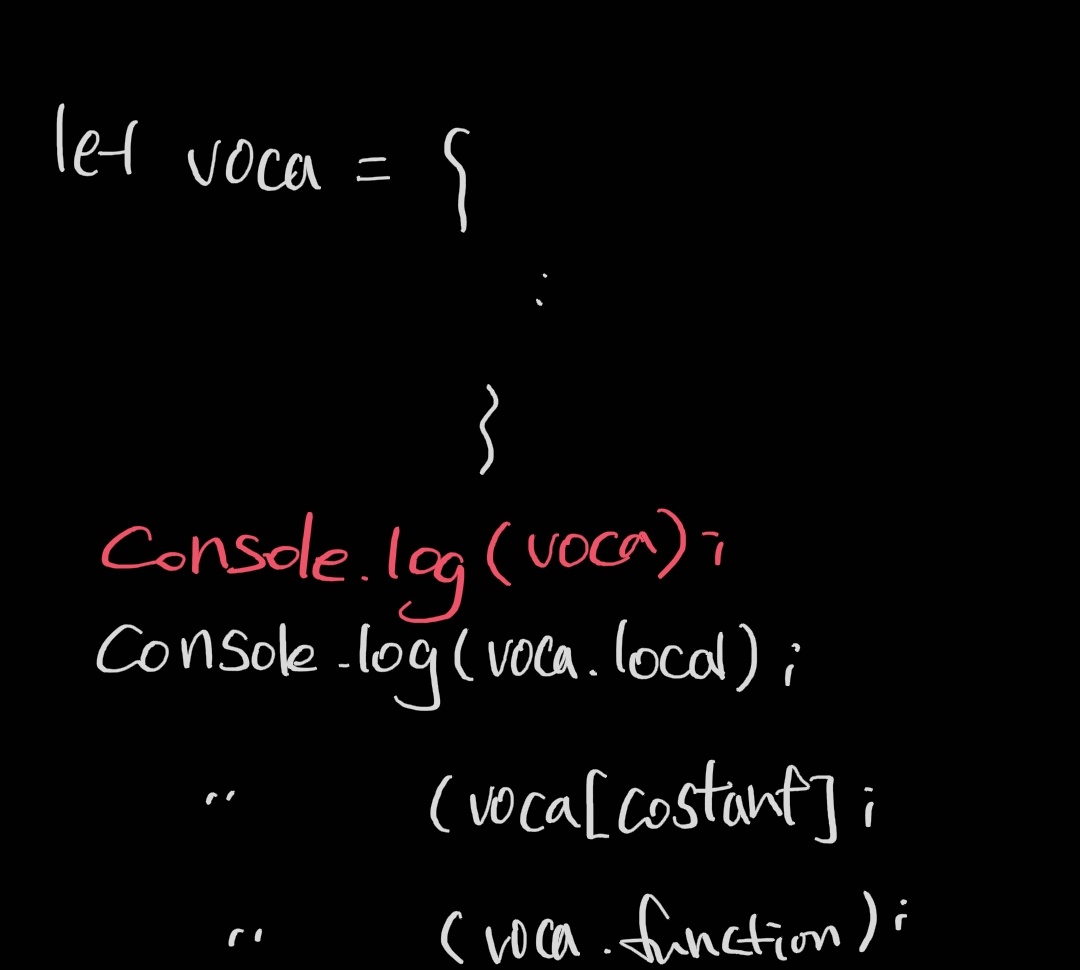 let voca = {
:
}
Console.log(voca);
Console.log(voca.local);
" (voca[costant];
" (voca.function);